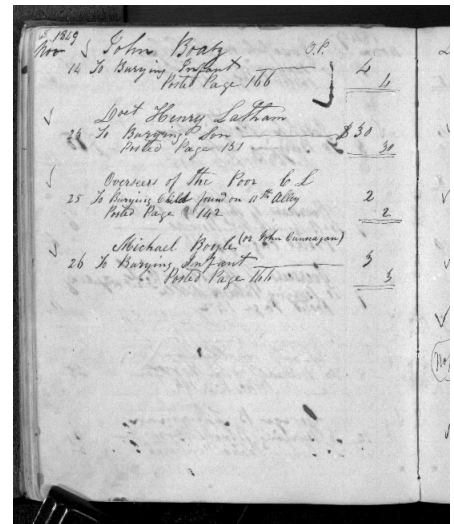 1849
Nov John Boatz O.P.
14 To Burying Infant 4
Posted Page 166 4
Doct Henry Latham
23 To Burying Son $30
Posted Page 131 30
Overseers of the Poor C L
25 To Burying Child found on 11th Alley 2
Posted Page 142 2
Michael Boyle (or John Cunnagan)
26 To Burying Infant 3
Posted Page 166 3